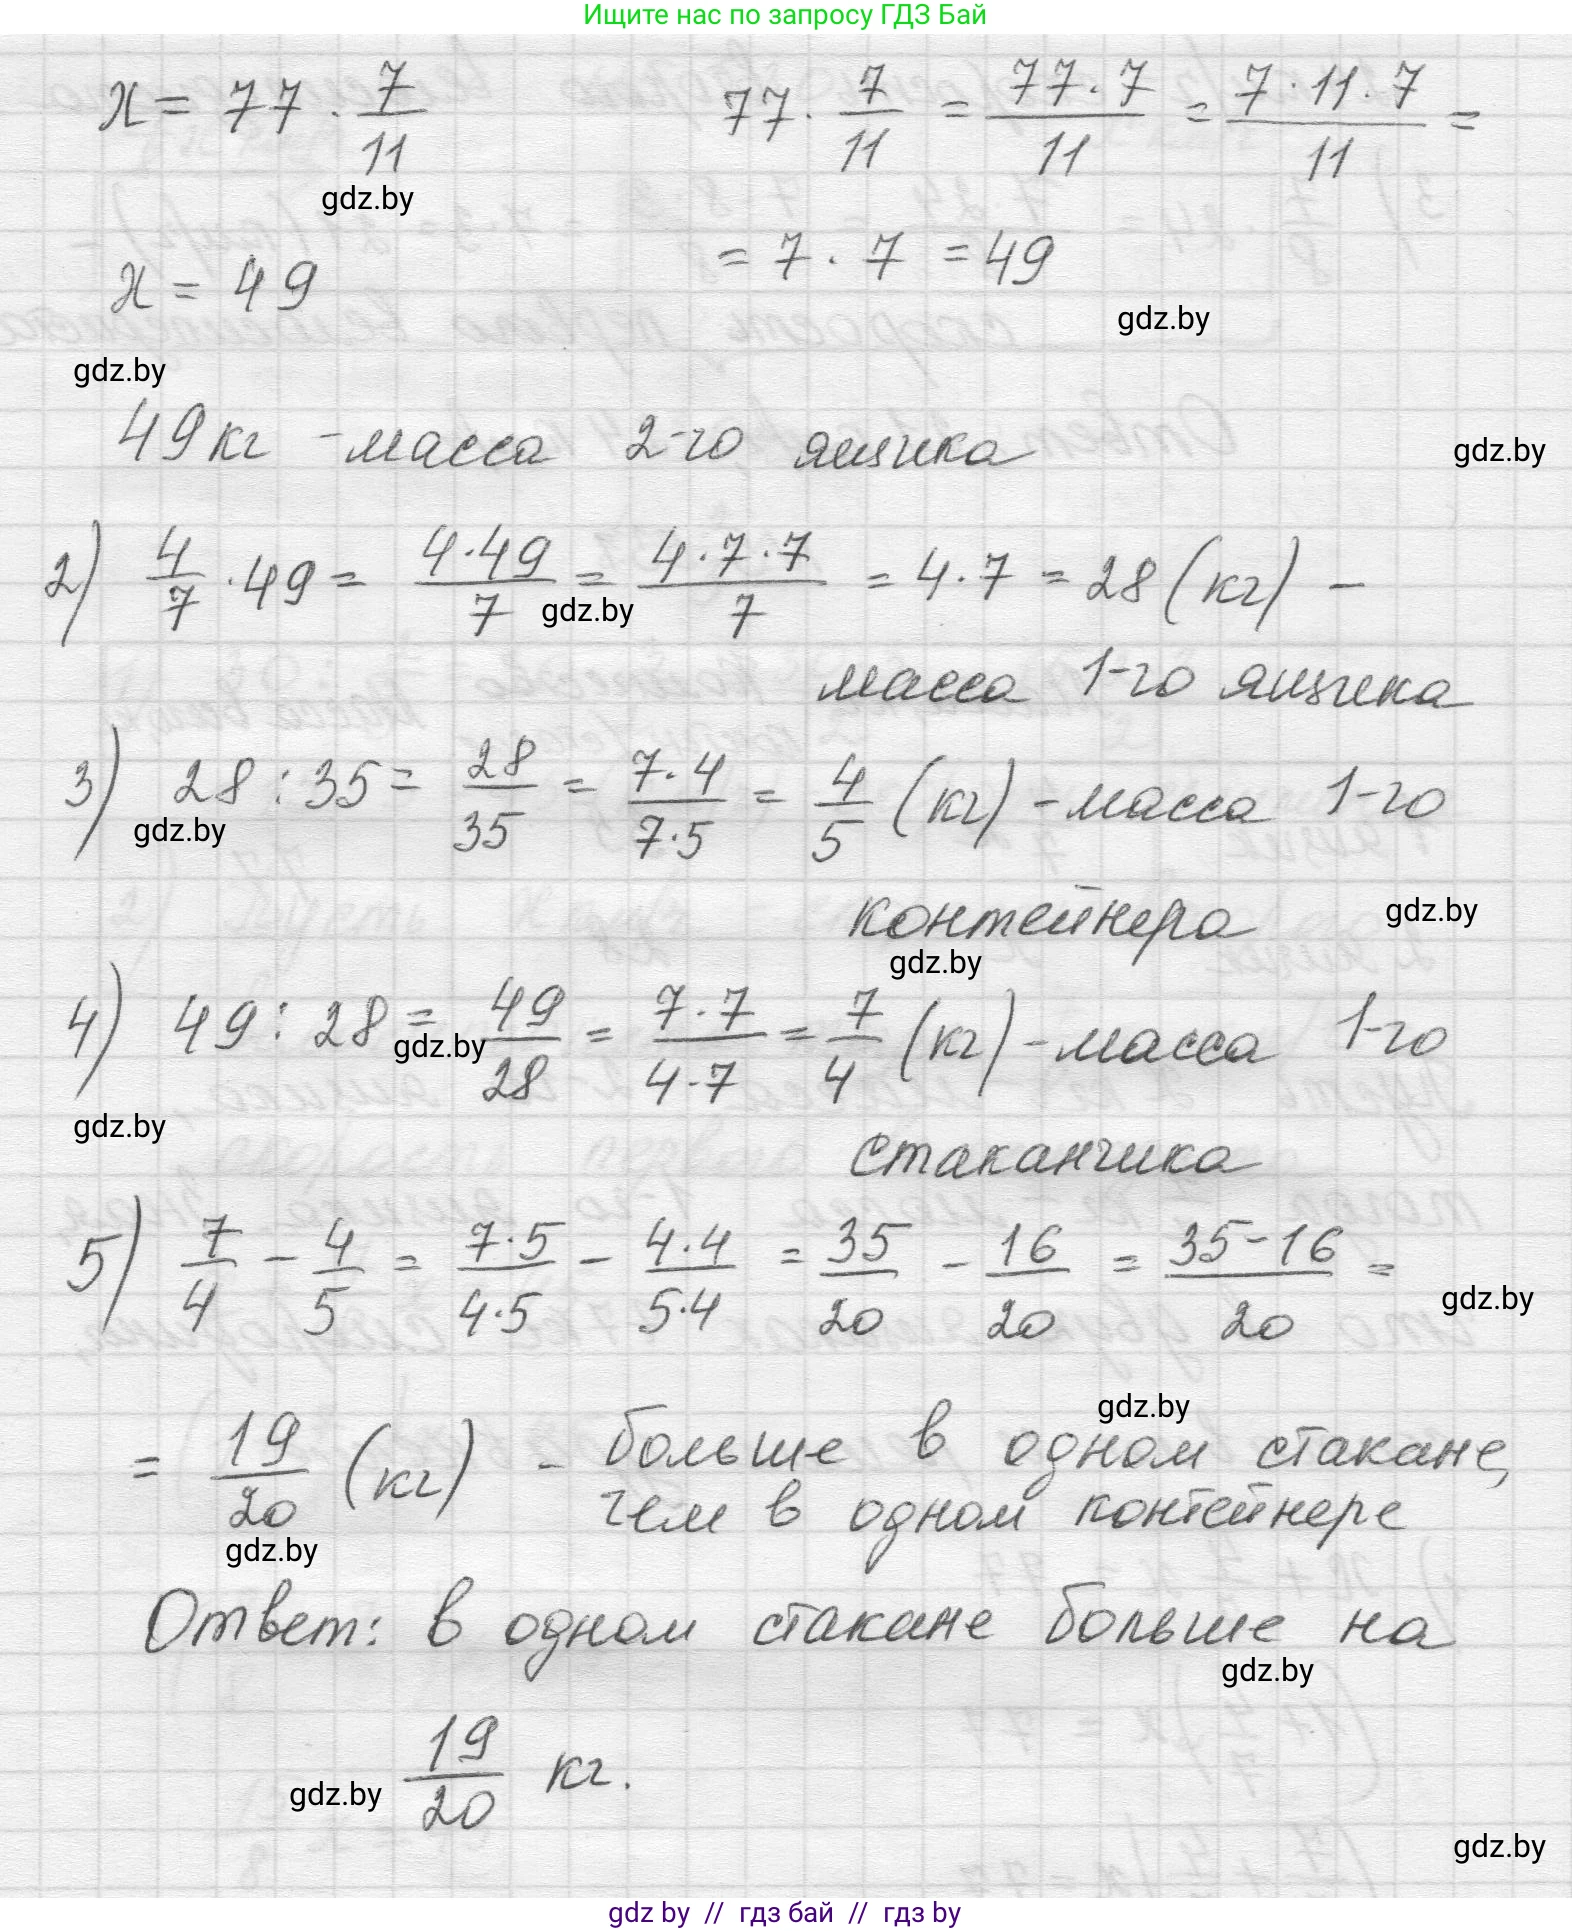 Ищите нас по запросу ГДЗ Бай
x = 77 · 7/11
77 · 7/11 = 77·7/11 = 7·11·7/11 =
gdz.by
x = 49
= 7 · 7 = 49
gdz.by
gdz.by
49 кг - масса 2-го ящика
gdz.by
2) 4/7 · 49 = 4·49/7 = 4·7·7/7 = 4·7 = 28 (кг) –
gdz.by
масса 1-го ящика
3) 28 : 35 = 28/35 = 7·4/7·5 = 4/5 (кг) - масса 1-го
gdz.by
контейнера
gdz.by
gdz.by
4) 49 : 28 = 49/28 = 7·7/4·7 = 7/4 (кг) - масса 1-го
gdz.by
gdz.by
стаканчика
5) 7/4 – 4/5 = 7·5/4·5 – 4·4/5·4 = 35/20 – 16/20 = 35–16/20 =
gdz.by
gdz.by
= 19/20 (кг) - больше в одном стакане,
чем в одном контейнере
gdz.by
Ответ: в одном стакане больше на
gdz.by
19/20 кг.
gdz.by
gdz.by
gdz by // гдз бай // гдз by